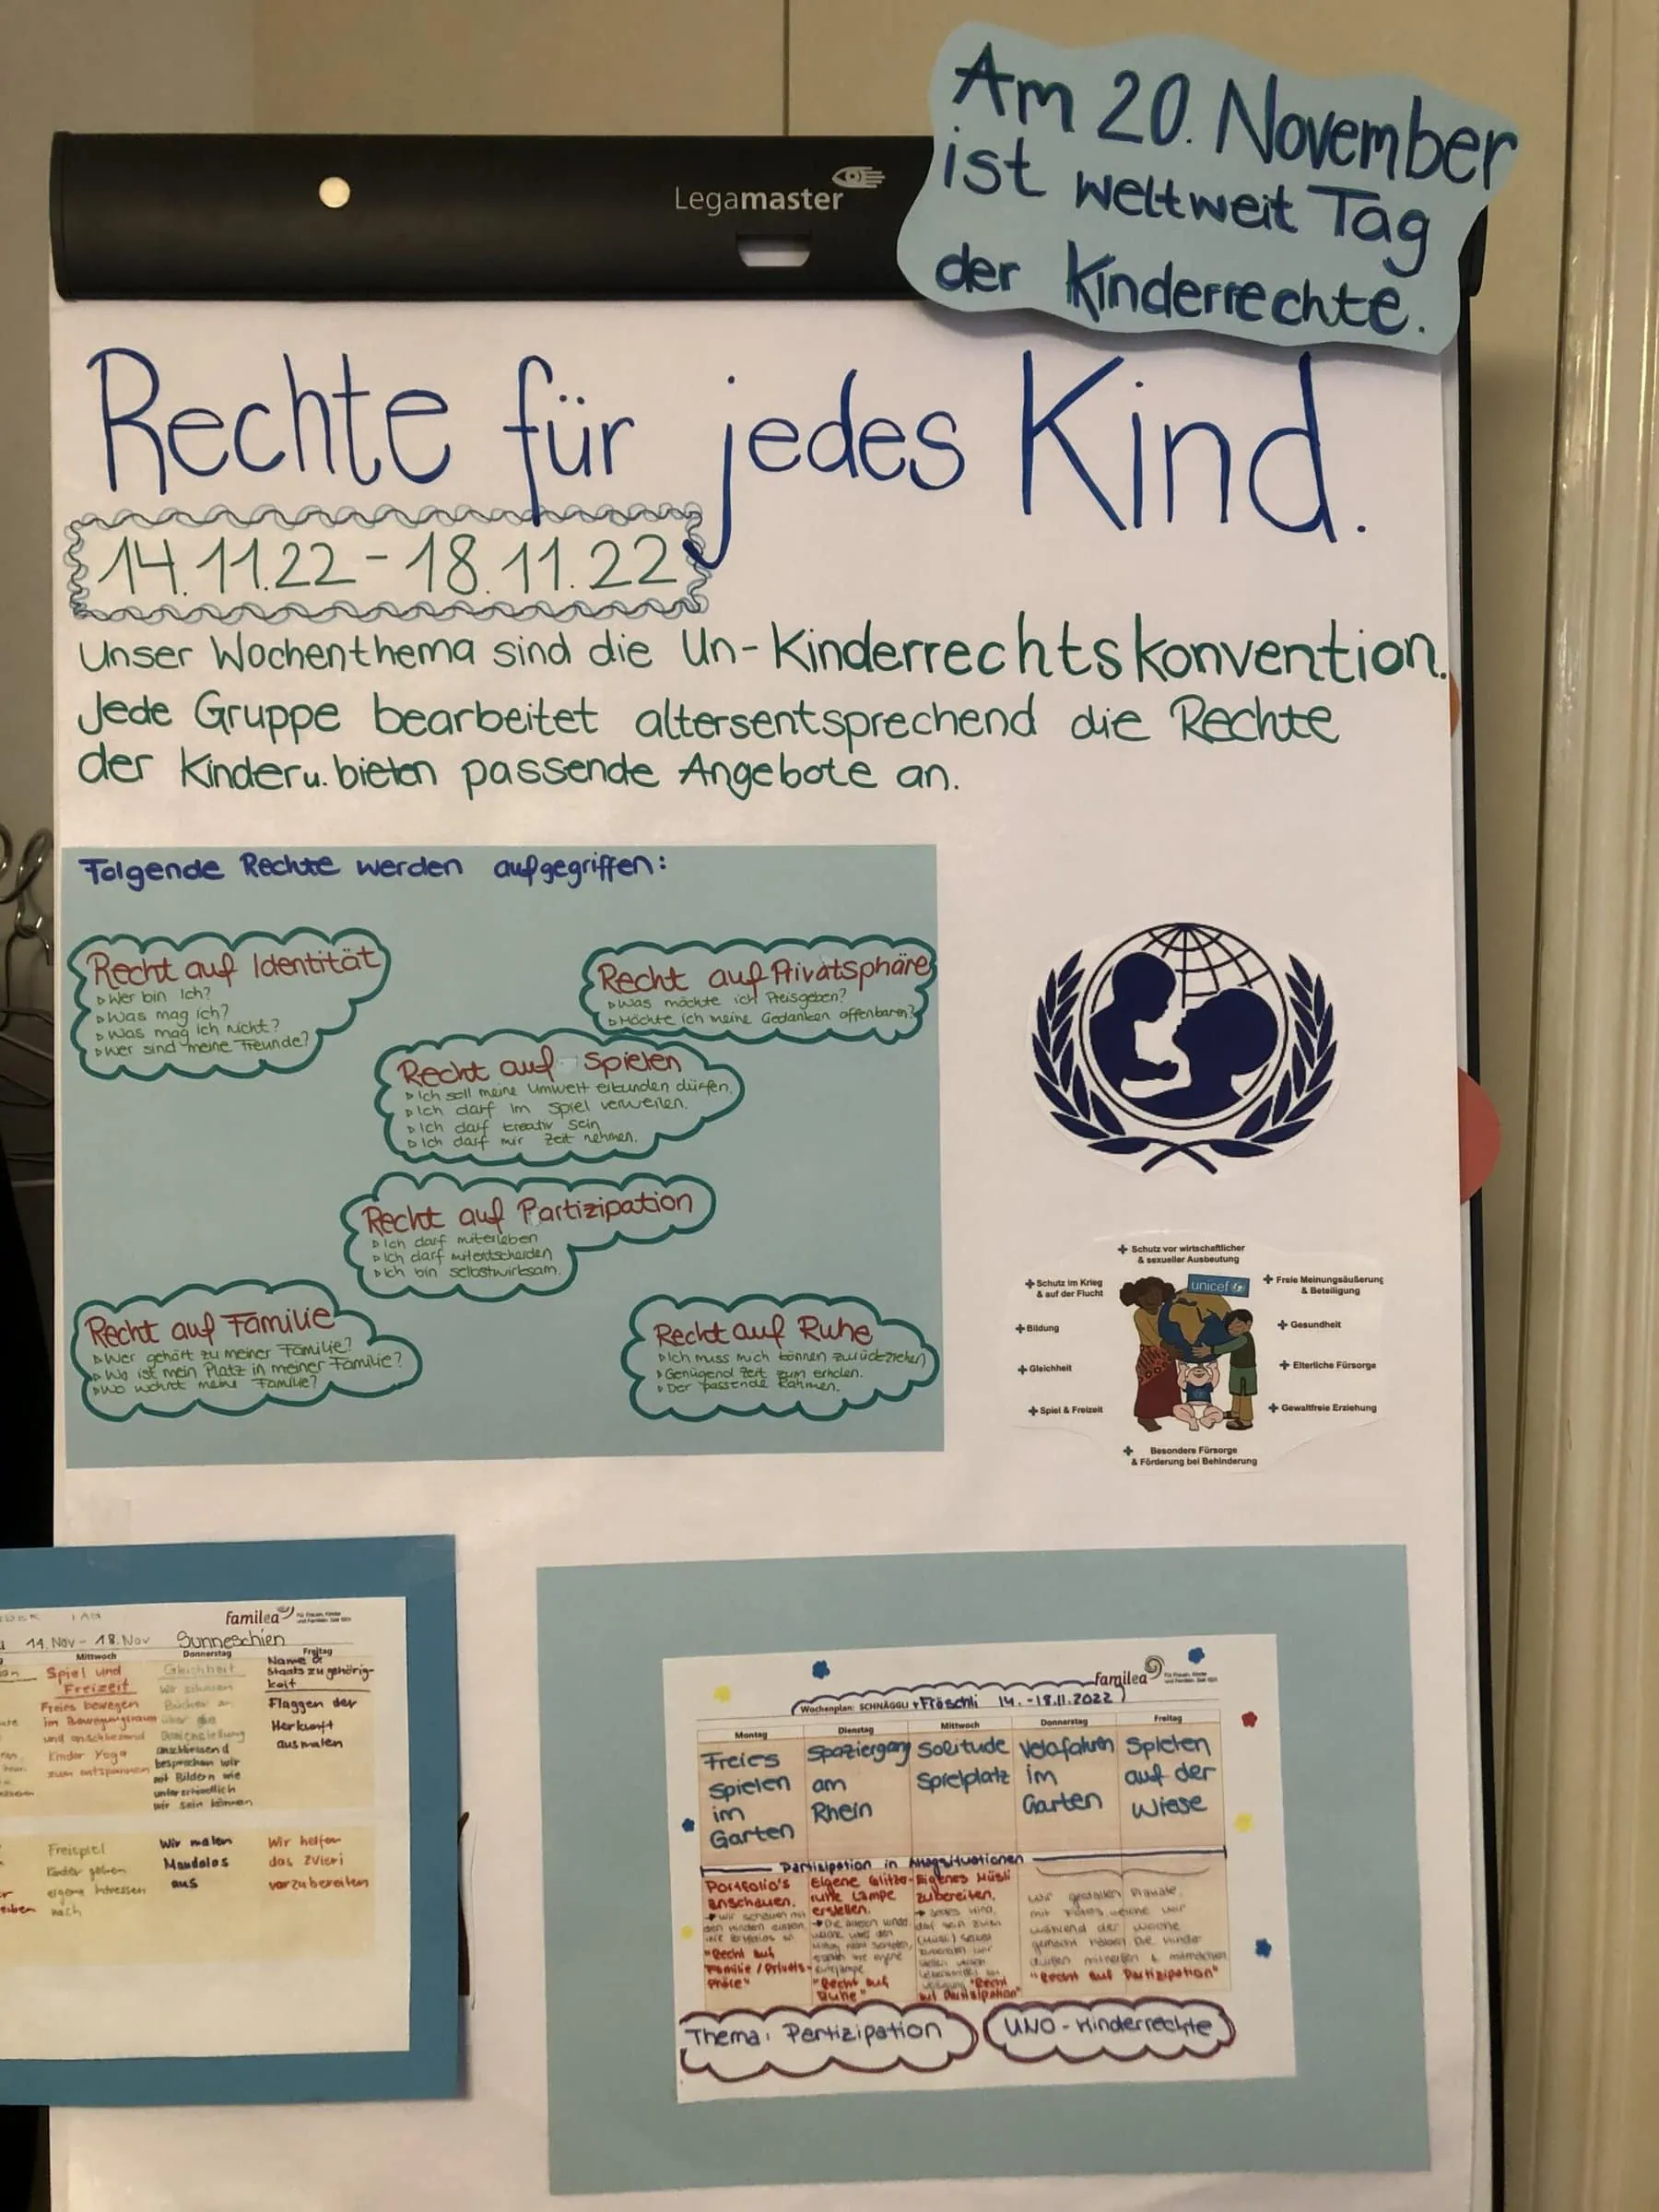 Am 20. November
ist weltweit Tag
der Kinderrechte.
Legamaster
Rechte für jedes Kind.
14.11.22 - 18.11.22
Unser Wochenthema sind die Un-Kinderrechtskonvention.
Jede Gruppe bearbeitet altersentsprechend die Rechte
der Kinder u. bieten passende Angebote an.
Folgende Rechte werden aufgegriffen:
Recht auf Identität
Wer bin Ich?
Was mag ich?
Was mag ich nicht?
Wer sind meine Freunde?
Recht auf Privatsphäre
Was möchte ich Preisgeben?
Möchte ich meine Gedanken offenbaren?
Recht auf Spielen
Ich soll meine Umwelt erkunden dürfen.
Ich darf im Spiel verweilen.
Ich darf kreativ sein
Ich darf mir Zeit nehmen.
Recht auf Partizipation
Ich darf miterleben
Ich darf mitentscheiden
Ich bin selbstwirksam.
Recht auf Familie
Wer gehört zu meiner Familie?
Wo ist mein Platz in meiner Familie?
Wo wohnt meine Familie?
Recht auf Ruhe
Ich muss mich können zurückziehen
Genügend Zeit zum erholen.
Der passende Rahmen.
+ Schutz vor wirtschaftlicher
& sexueller Ausbeutung
+ Schutz im Krieg
& auf der Flucht
unicef
+ Freie Meinungsäußerung
& Beteiligung
+ Bildung
+ Gesundheit
+ Gleichheit
+ Elterliche Fürsorge
+ Spiel & Freizeit
+ Gewaltfreie Erziehung
+ Besondere Fürsorge
& Förderung bei Behinderung
familea
14. Nov - 18. Nov Sunneschien
Mittwoch
Spiel und
Freizeit
Freies bewegen
im Bewegungsraum
und anschliessend
Kinder Yoga
zum entspannen
Donnerstag
Gleichheit
Wir schauen
Bücher an
über die
anschliessend
besprechen wir
mit Bildern wie
unterschiedlich
wir sein können
Freitag
Name &
Staatszugehörig-
keit
Flaggen der
Herkunft
ausmalen
Freispiel
Kinder gehen
eigene Interessen
nach
Wir malen
Mandalas
aus
Wir helfen
das Zvieri
vorzubereiten
familea
Wochenplan: SCHNÄGGLI + Fröschli 14. - 18.11.2022
Montag
Freies
Spielen
im
Garten
Dienstag
Spaziergang
am
Rhein
Mittwoch
Solitude
Spielplatz
Donnerstag
Velofahren
im
Garten
Freitag
Spielen
auf der
Wiese
Partizipation in Alltagsituationen
Portfolio's
anschauen.
"Recht auf
Familie / Privats-
phäre"
Eigene Glitzer-
ruhe Lampe
erstellen.
"Recht auf
Ruhe"
Eigenes Müsli
zubereiten.
"Recht
auf Partizipation"
Wir gestalten Plakate,
mit Fotos, welche wir
während der Woche
gemacht haben. Die Kinder
dürfen mithelfen &
"Recht auf Partizipation"
Thema: Partizipation
UNO-Kinderrechte